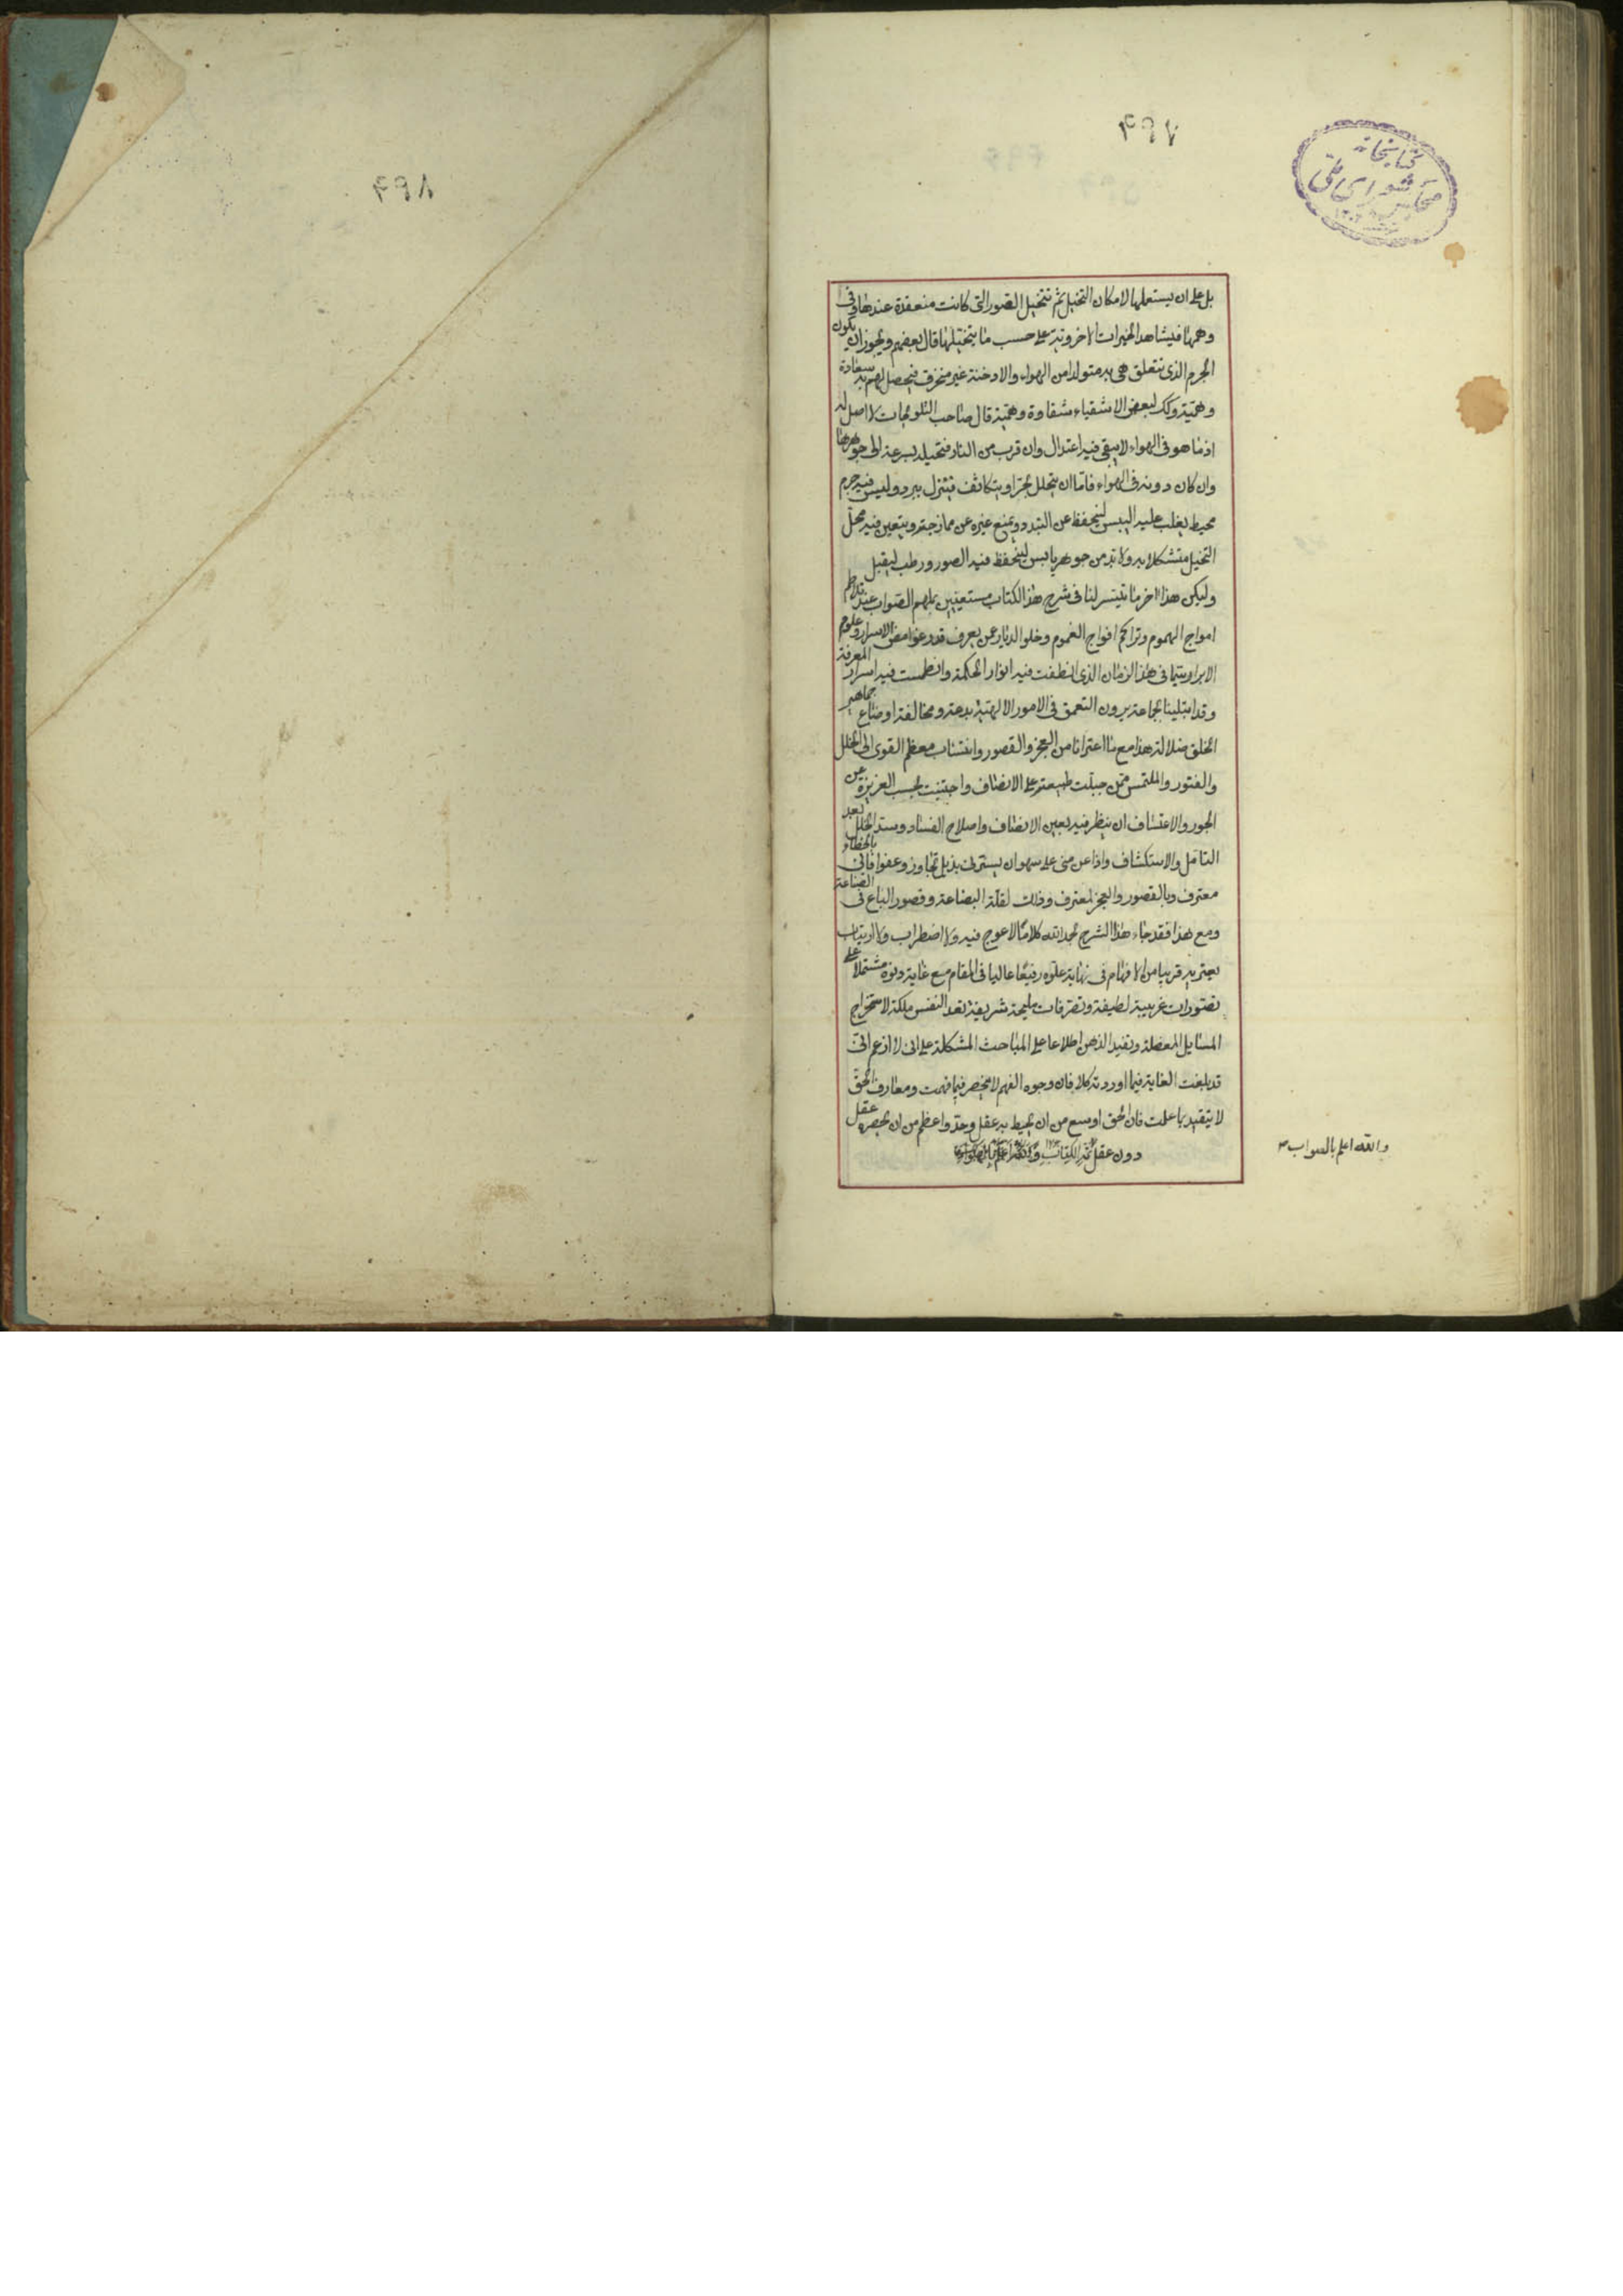 ۴۹۷
كتابخانه
مجلس شورای ملی
بل على ان يستعملها لامكان التخيل ثم تتخيل الصور التى كانت منعقدة عندها وفى
وهمها فيشاهد الخيرات الاخروية على حسب ما يتخيلها قال بعضهم ويجوز ان يكون
الجرم الذى تتعلق هى به متولدا من الهواء والادخنة غير منخرق فيحصل لهم به سعادة
وهمية وكك لبعض الاشقياء شقاوة وهمية قال صاحب التلويحات لا اصل له
اذ ما هو فى الهواء لا يبقى فيه اعتدال وان قرب من النار فتحيله بسرعة الى جوهرها
وان كان دونه فى الهواء فاما ان يتحلل بحر او يتكاثف فينزل ببرد وليس فيه جرم
محيط يغلب عليه اليبس لينحفظ عن التبدد ويمنع غيره عن ممازجته ويتعين فيه محل
التخيل متشكلا به ولا بد من جوهر يابس لينحفظ فيه الصور ورطب ليقبل
وليكن هذا اخر ما تيسر لنا فى شرح هذا الكتاب مستعينين بملهم الصواب عند تلاطم
امواج الهموم وتراكم افواج الغموم وخلو الديار عمن يعرف قدر غوامض الاسرار وعلوم
الابرار سيما فى هذا الزمان الذى انطفت فيه انوار الحكمة وانطمست فيه اسرار المعرفة
وقد ابتلينا بجماعة يرون التعمق فى الامور الالهية بدعة ومخالفة اوضاع جماهير
الخلق ضلالة هذا مع ما اعترانا من العجز والقصور وانتساب معظم القوى الى الخلل
والفتور والملتمس ممن جبلت طبيعته على الانصاف واجتنبت بحسب الغريزة عن
الجور والاعتساف ان ينظر فيه بعين الانصاف واصلاح الفساد وسد الخلل بعد
التامل والاستكشاف واذا عثر منى على سهو ان يسترنى بذيل تجاوز وعفو فانى بالخطاء
معترف وبالقصور والعجز لمعترف وذلك لقلة البضاعة وقصور الباع فى الصناعة
ومع هذا فقد جاء هذا الشرح بحمد الله كلاما لا عوج فيه ولا اضطراب ولا ارتياب
يعتريه قريبا من الافهام فى نهاية علوه رفيعا عاليا فى المقام مع غاية دنوه مشتملا على
تصورات غريبة لطيفة وتصرفات مليحة شريفة تعد النفس ملكة لاستخراج
المسايل المعضلة وتفيد الذهن اطلاعا على المباحث المشكلة على انى لا ازعم انى
قد بلغت الغاية فيما اوردته كلا فان وجوه الفهم لا تنحصر فيما فهمت ومعارف الحق
لا يتقيد بما علمت فان الحق اوسع من ان يحيط به عقل وحد واعظم من ان يحصره عقل
دون عقل تم الكتاب
والله اعلم بالصواب
۴۹۸